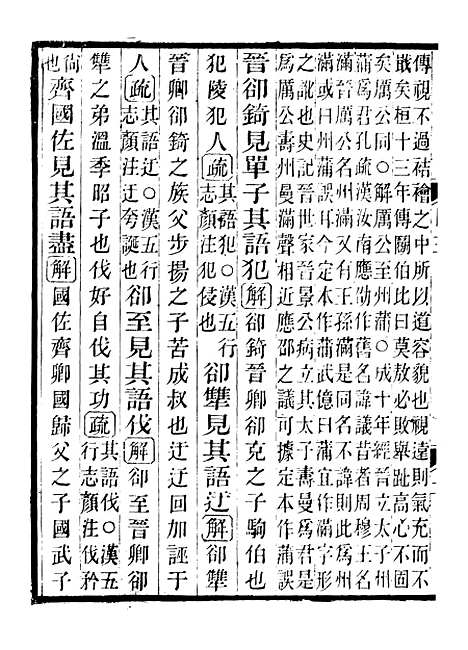 傳視不過袺襘之中所以道容貌也視遠則氣充而不
戢矣桓十三年傳鬬伯比曰莫敖必敗舉趾高心不固
矣厲公同○解厲公至州蒲○成十年經晉立太子州
蒲爲君孔疏漢汝南應劭作舊名諱議昔者周穆王名
滿晉厲公名州滿又有王孫滿是同名不諱則此爲州
滿或曰州蒲誤耳今定本作蒲武億曰蒲宜作滿字形
之訛也史記晉世家晉景公病立其太子壽曼爲君是
爲厲公壽州曼滿聲相近應邵之議可據定本作蒲誤
晉郤錡見單子其語犯解郤錡晉卿郤克之子駒伯也
犯陵犯人疏其語犯○漢五行志顏注犯侵也郤犨見其語迂解郤犨
晉卿郤錡之族父步揚之子苦成叔也迂迂回加誣于
人疏其語迂○漢五行志顏注迂夸誕也郤至見其語伐解郤至晉卿郤
犨之弟溫季昭子也伐好自伐其功疏其語伐○漢五行志顏注伐矜
尙也齊國佐見其語盡解國佐齊卿國歸父之子國武子